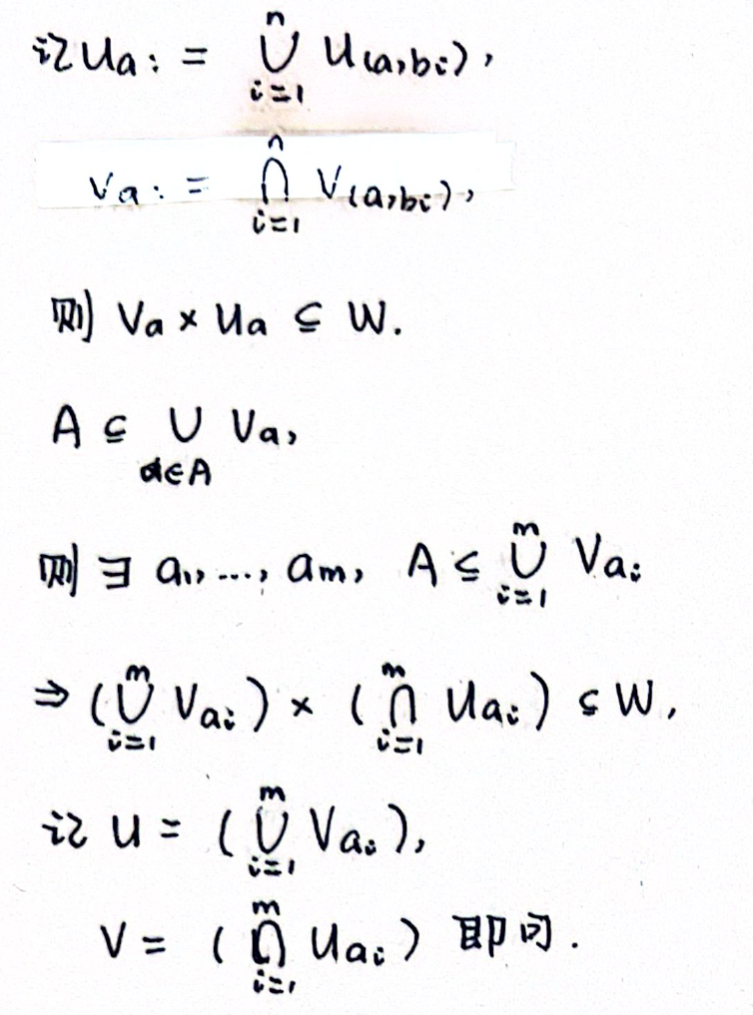 记 Ua := ⋃_{i=1}^{n} U(a,bi),
Va := ⋂_{i=1}^{n} V(a,bi),
则 Va × Ua ⊆ W.
A ⊆ ⋃_{a∈A} Va,
则 ∃ a1, ..., am, A ⊆ ⋃_{i=1}^{m} Vai
⇒ (⋃_{i=1}^{m} Vai) × (⋂_{i=1}^{m} Uai) ⊆ W,
记 U = (⋃_{i=1}^{m} Vai),
V = (⋂_{i=1}^{m} Uai) 即可.